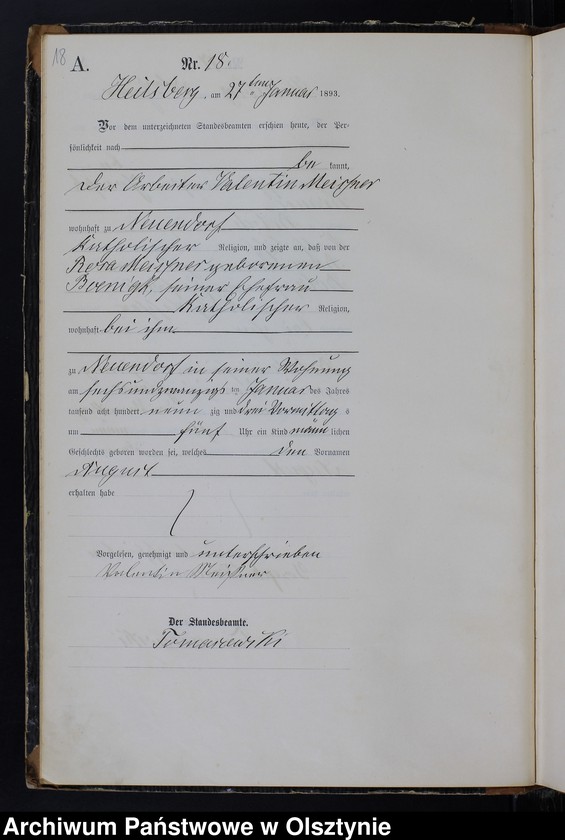 18
A. Nr. 18.
Heilsberg, am 27ten Januar 1893.
Vor dem unterzeichneten Standesbeamten erschien heute, der Per-
sönlichkeit nach
be kannt,
der Arbeiter Valentin Meißner
wohnhaft zu Neuendorf
katholischer Religion, und zeigte an, daß von der
Rosa Meißner geborenen
Boenigk, seiner Ehefrau
katholischer Religion,
wohnhaft bei ihm
zu Neuendorf in seiner Wohnung
am sechsundzwanzigsten Januar des Jahres
tausend acht hundert neun zig und drei Vormittag s
um fünf Uhr ein Kind männ lichen
Geschlechts geboren worden sei, welches den Vornamen
August
erhalten habe
Vorgelesen, genehmigt und unterschrieben
Valentin Meißner
Der Standesbeamte.
Tomaszewski
Archiwum Państwowe w Olsztynie